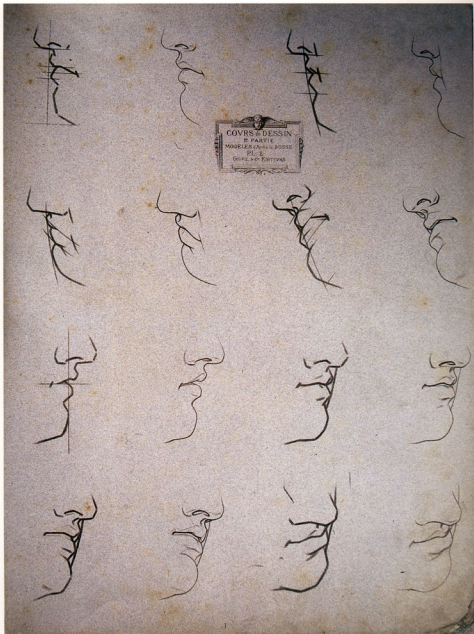 COVRS DE DESSIN
1E PARTIE
MODELES D'APRES LA BOSSE
PL. 2
GOUPIL & CIE EDITEURS